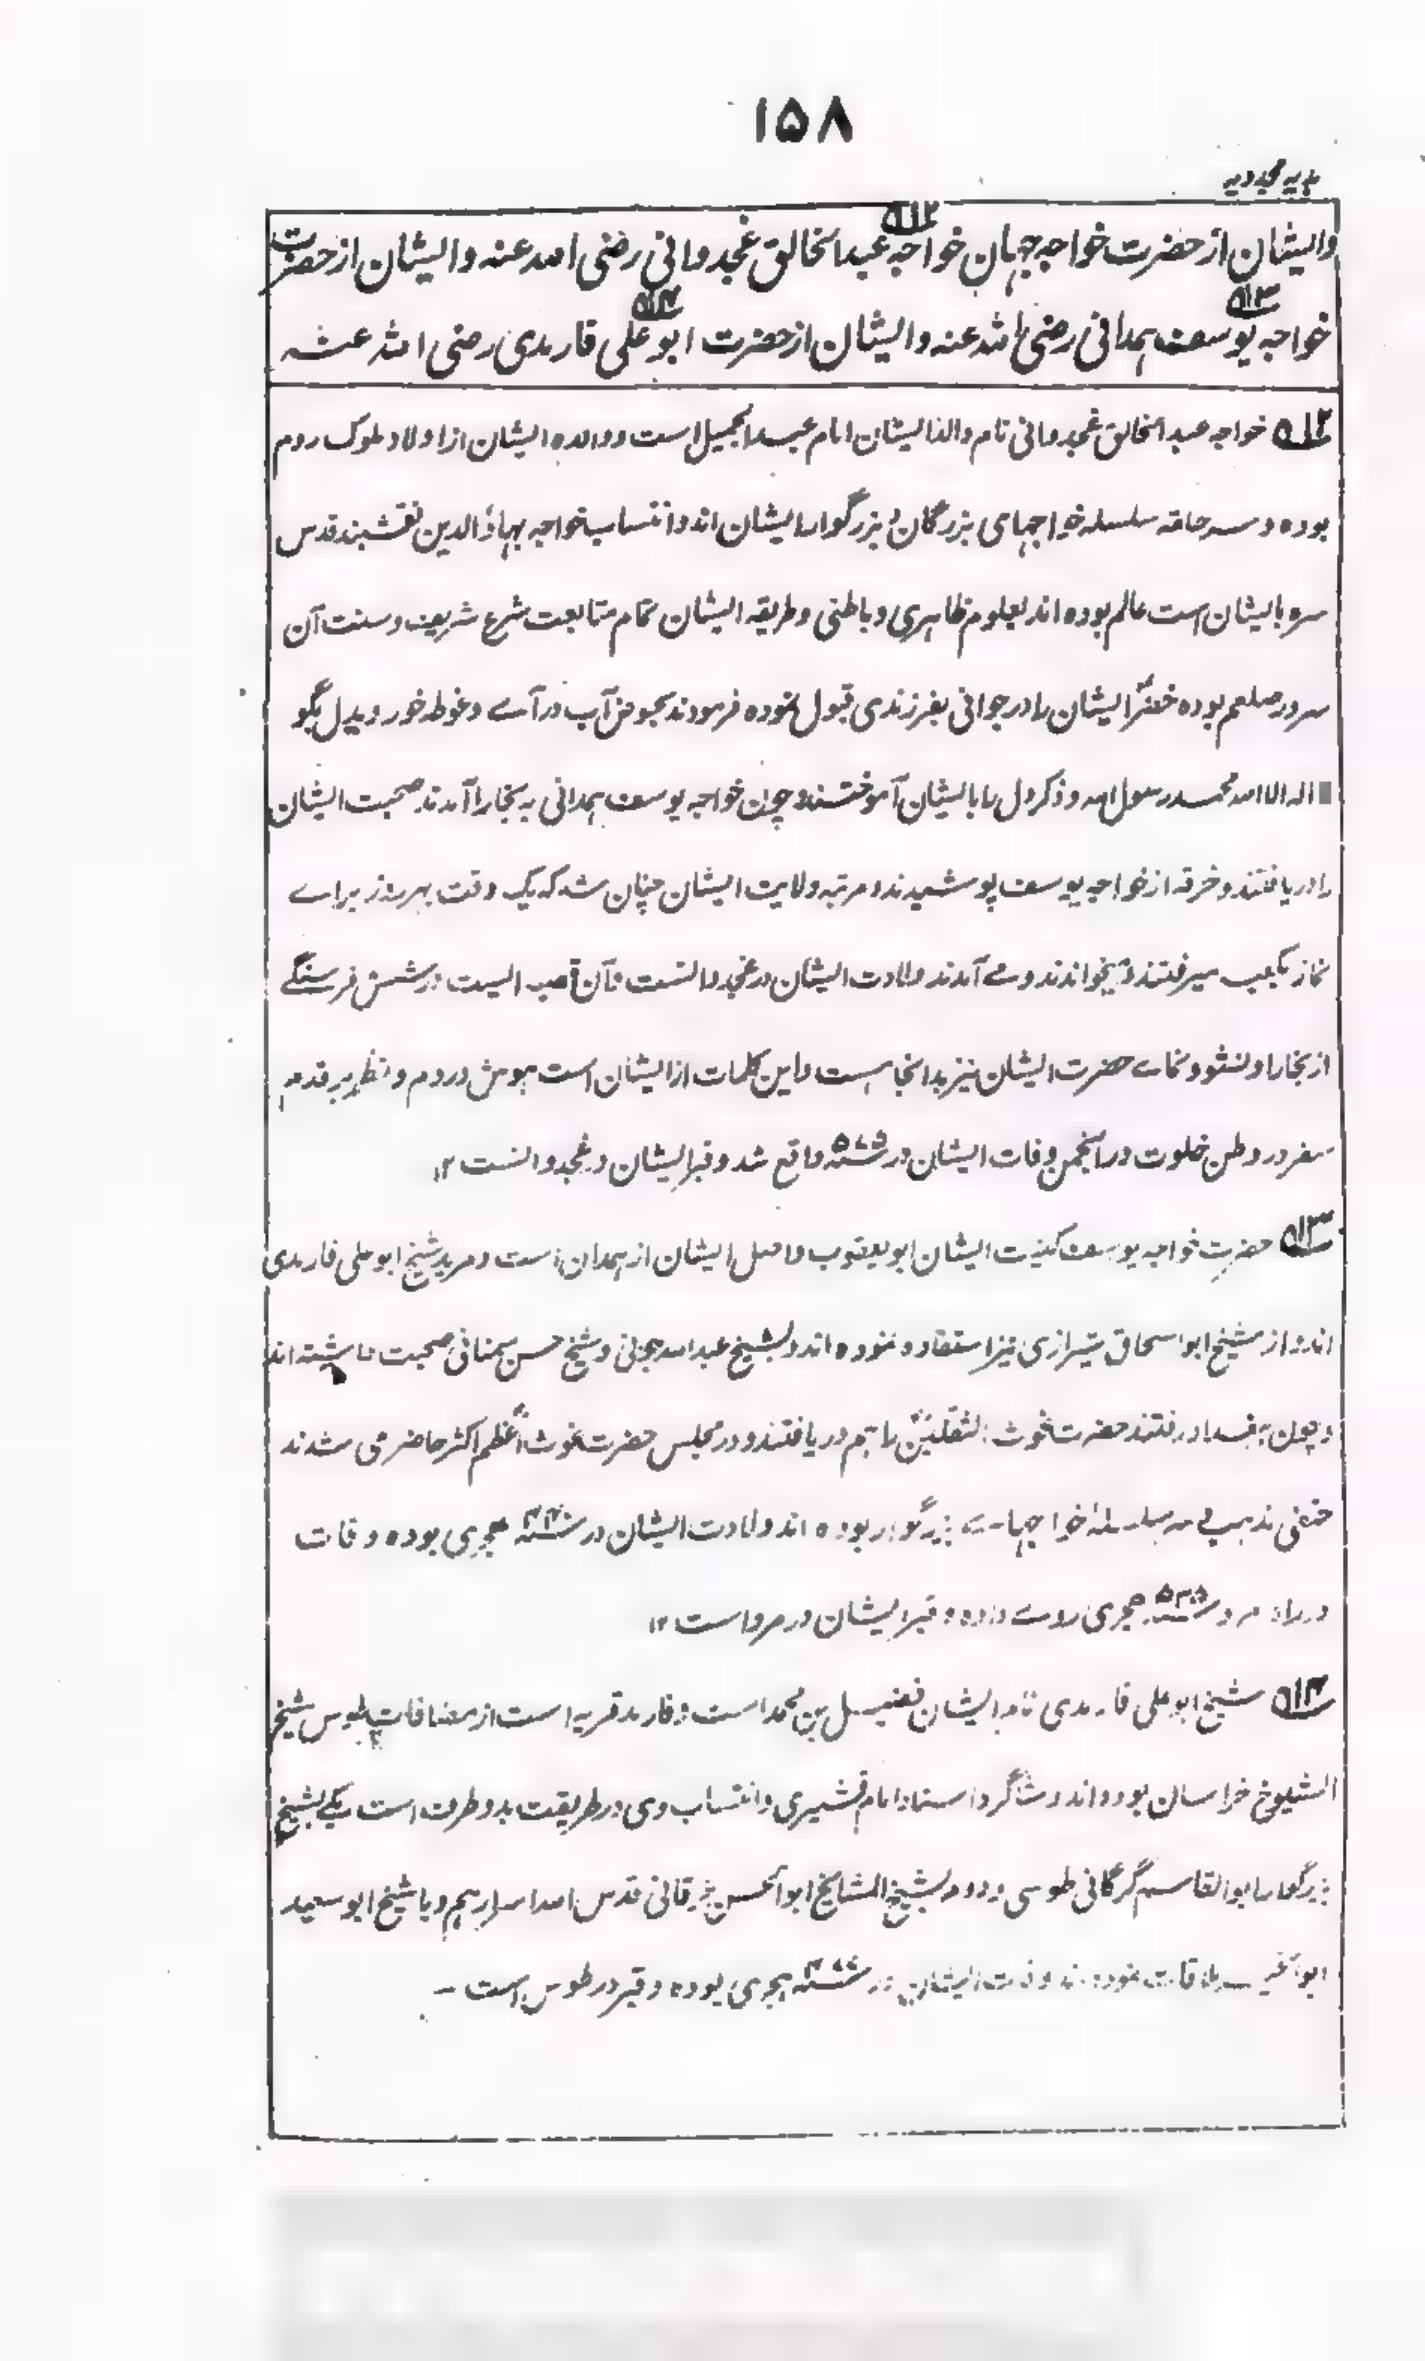 ۱۵۸
ہدیہ مجددیہ
وایشان از حضرت خواجہ جہان خواجہ عبدالخالق غجدوانی رضی اللہ عنہ وایشان از حضرت
خواجہ یوسف ہمدانی رضی اللہ عنہ وایشان از حضرت ابو علی فارمدی رضی اللہ عنہ
خواجہ عبدالخالق غجدوانی نام والد ایشان امام عبدالجمیل است ووالدہ ایشان از اولاد ملوک روم
بودہ و سر حلقہ سلسلہ خواجہای بزرگان بزرگوار ایشان اند وانتساب خواجہ بہاؤ الدین نقشبند قدس
سرہ بایشان است عالم بودہ اند بعلوم ظاہری و باطنی و طریقہ ایشان تمام متابعت شرع شریف و سنت آن
سرور صلعم بودہ خضرؑ ایشان را در جوانی بفرزندی قبول نمودہ فرمودند بحوض آب در آے و غوطہ خور و بدل بگو
الہ الا اللہ محمد رسول اللہ و ذکر دل را بایشان آموختند و چون خواجہ یوسف ہمدانی بہ بخارا آمدند صحبت ایشان
را دریافتند و خرقہ از خواجہ یوسف پوشیدند و مرتبہ ولایت ایشان چنان شد کہ یک وقت ہر روز براے
نماز بکعبہ میرفتند و میخواندند و مے آمدند ولادت ایشان در غجدوانست و آن قصبہ ایست در شش فرسنگے
از بخارا و نشو و نماے حضرت ایشان نیز بدانجاست و این کلمات از ایشان است ہوش در دم و نظر بر قدم
سفر در وطن خلوت در انجمن وفات ایشان در ۵۷۵ واقع شد و قبر ایشان در غجدوانست ۱۲
حضرت خواجہ یوسف کنیت ایشان ابو یعقوب و اصل ایشان از ہمدان است و مرید شیخ ابو علی فارمدی
اند و از شیخ ابو اسحاق شیرازی نیز استفادہ نمودہ اند و بشیخ عبداللہ جوینی و شیخ حسن سمنانی صحبت داشتہ اند
و چون ببغداد رفتند حضرت غوث الثقلینؓ را ہم دریافتند و در مجلس حضرت غوث اعظم اکثر حاضر می شدند
حنفی مذہب سر سلسلۂ خواجہاے بزرگوار بودہ اند ولادت ایشان در ۴۴۰ ہجری بودہ وفات
در راہ مرو ۵۳۵ ہجری روے دادہ و قبر ایشان در مرو است ۱۲
شیخ ابو علی فارمدی نام ایشان فضیل بن محمد است و فارمد قریہ است از مضافات طوس شیخ
الشیوخ خراسان بودہ اند و شاگرد استاد امام قشیری وانتساب وی در طریقت بدو طرف است یکے بشیخ
بزرگوار ابو القاسم گرگانی طوسی و دوم بشیخ المشایخ ابوالحسن خرقانی قدس اللہ اسرارہم و با شیخ ابو سعید
ابوالخیر ملاقات نمودہ اند وفات ایشان در ۴۷۷ ہجری بودہ و قبر در طوس است -